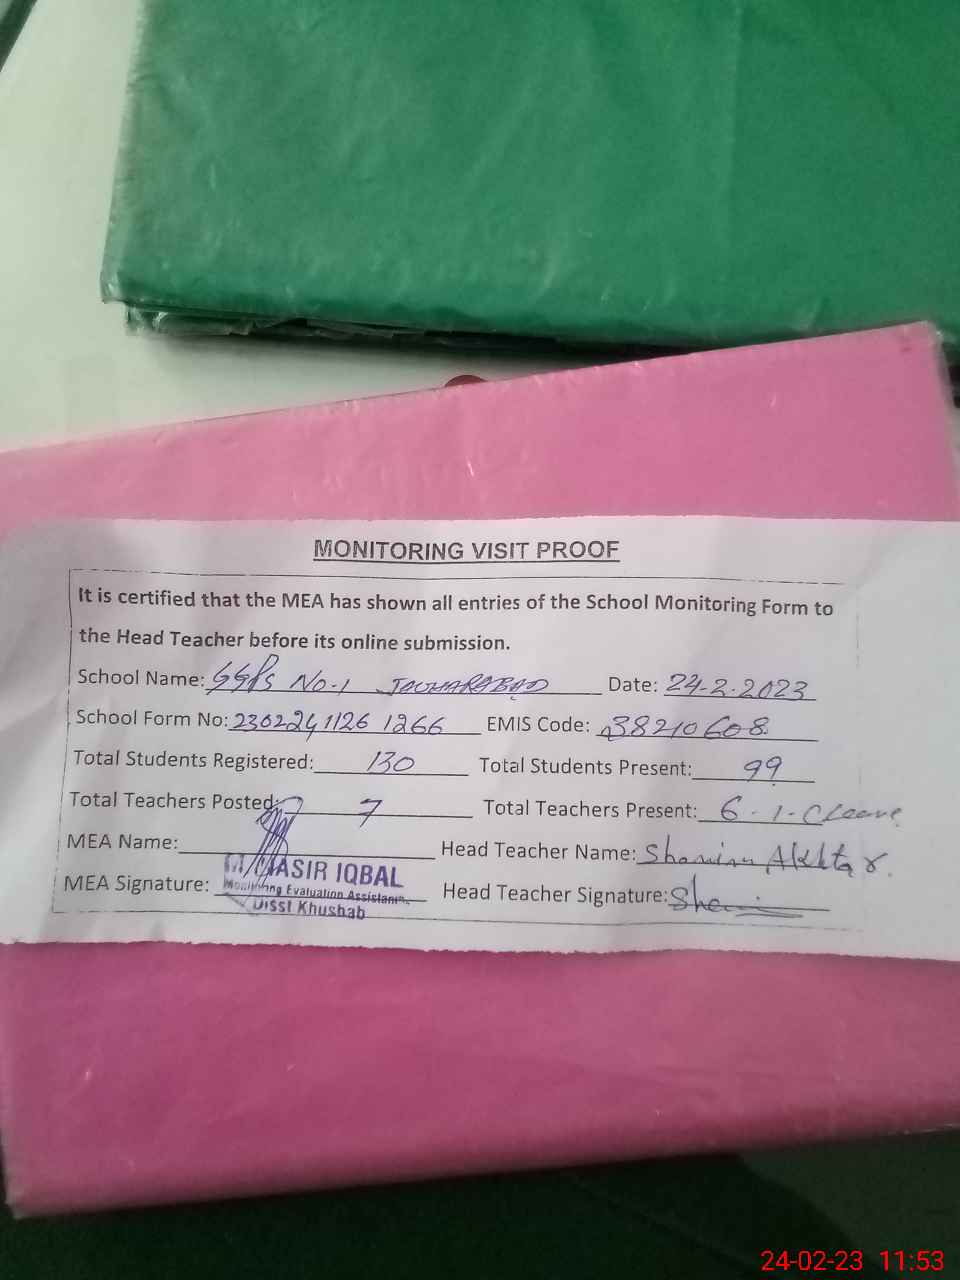 MONITORING VISIT PROOF
It is certified that the MEA has shown all entries of the School Monitoring Form to
the Head Teacher before its online submission.
School Name: GGPS No-1 JAUHARABAD Date: 24-2-2023
School Form No: 2302241126 1266 EMIS Code: 38210608
Total Students Registered: 130 Total Students Present: 99
Total Teachers Posted: 7 Total Teachers Present: 6-1-C Leave
MEA Name: Head Teacher Name: Shamim Akhtar.
MEA Signature: IQBAL Head Teacher Signature:
Monitoring Evaluation Assistant
Disst Khushab
24-02-23 11:53